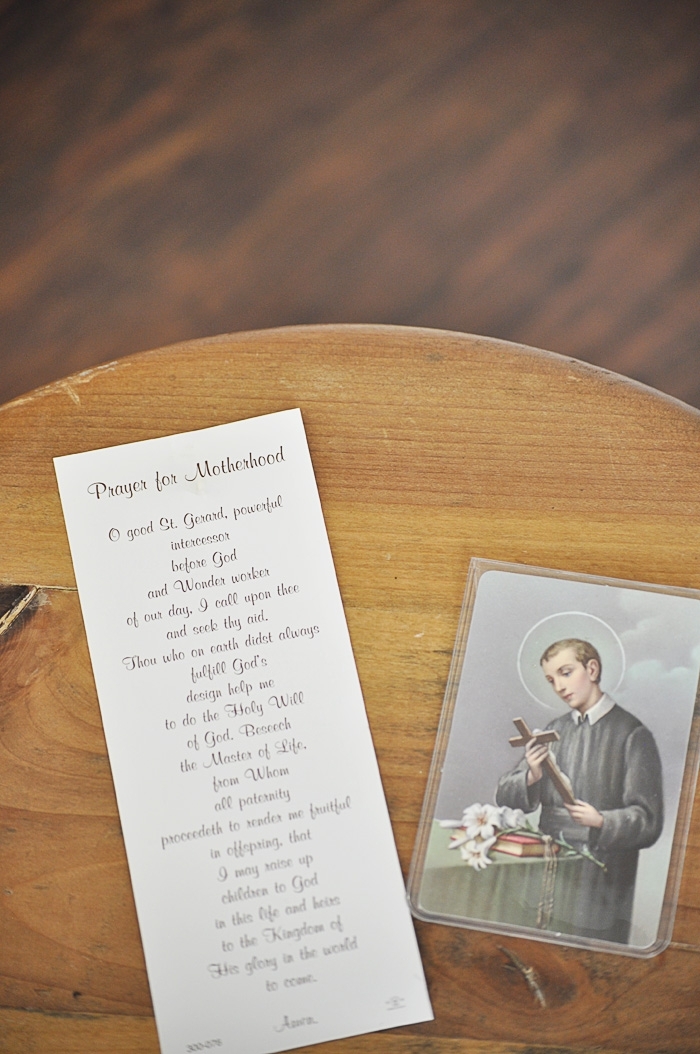 Prayer for Motherhood
O good St. Gerard, powerful
intercessor
before God
and Wonder worker
of our day, I call upon thee
and seek thy aid.
Thou who on earth didst always
fulfill God's
design help me
to do the Holy Will
of God. Beseech
the Master of Life,
from Whom
all paternity
proceedeth to render me fruitful
in offspring, that
I may raise up
children to God
in this life and heirs
to the Kingdom of
His glory in the world
to come.
Amen.
300-076